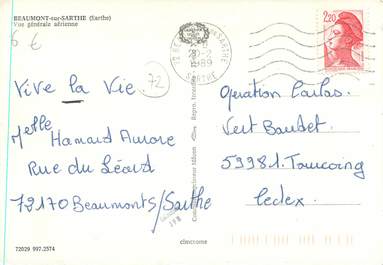 BEAUMONT-sur-SARTHE (Sarthe)
Vue générale aérienne
6 €
72
2,20
1989
SARTHE
Vive la Vie.
Melle Hamard Aurore
Rue du Léard
72170 Beaumont s/Sarthe
Opération Carlos
Vert Baudet.
59981. Tourcoing
Cedex.
72029 997.2574
cimcrome